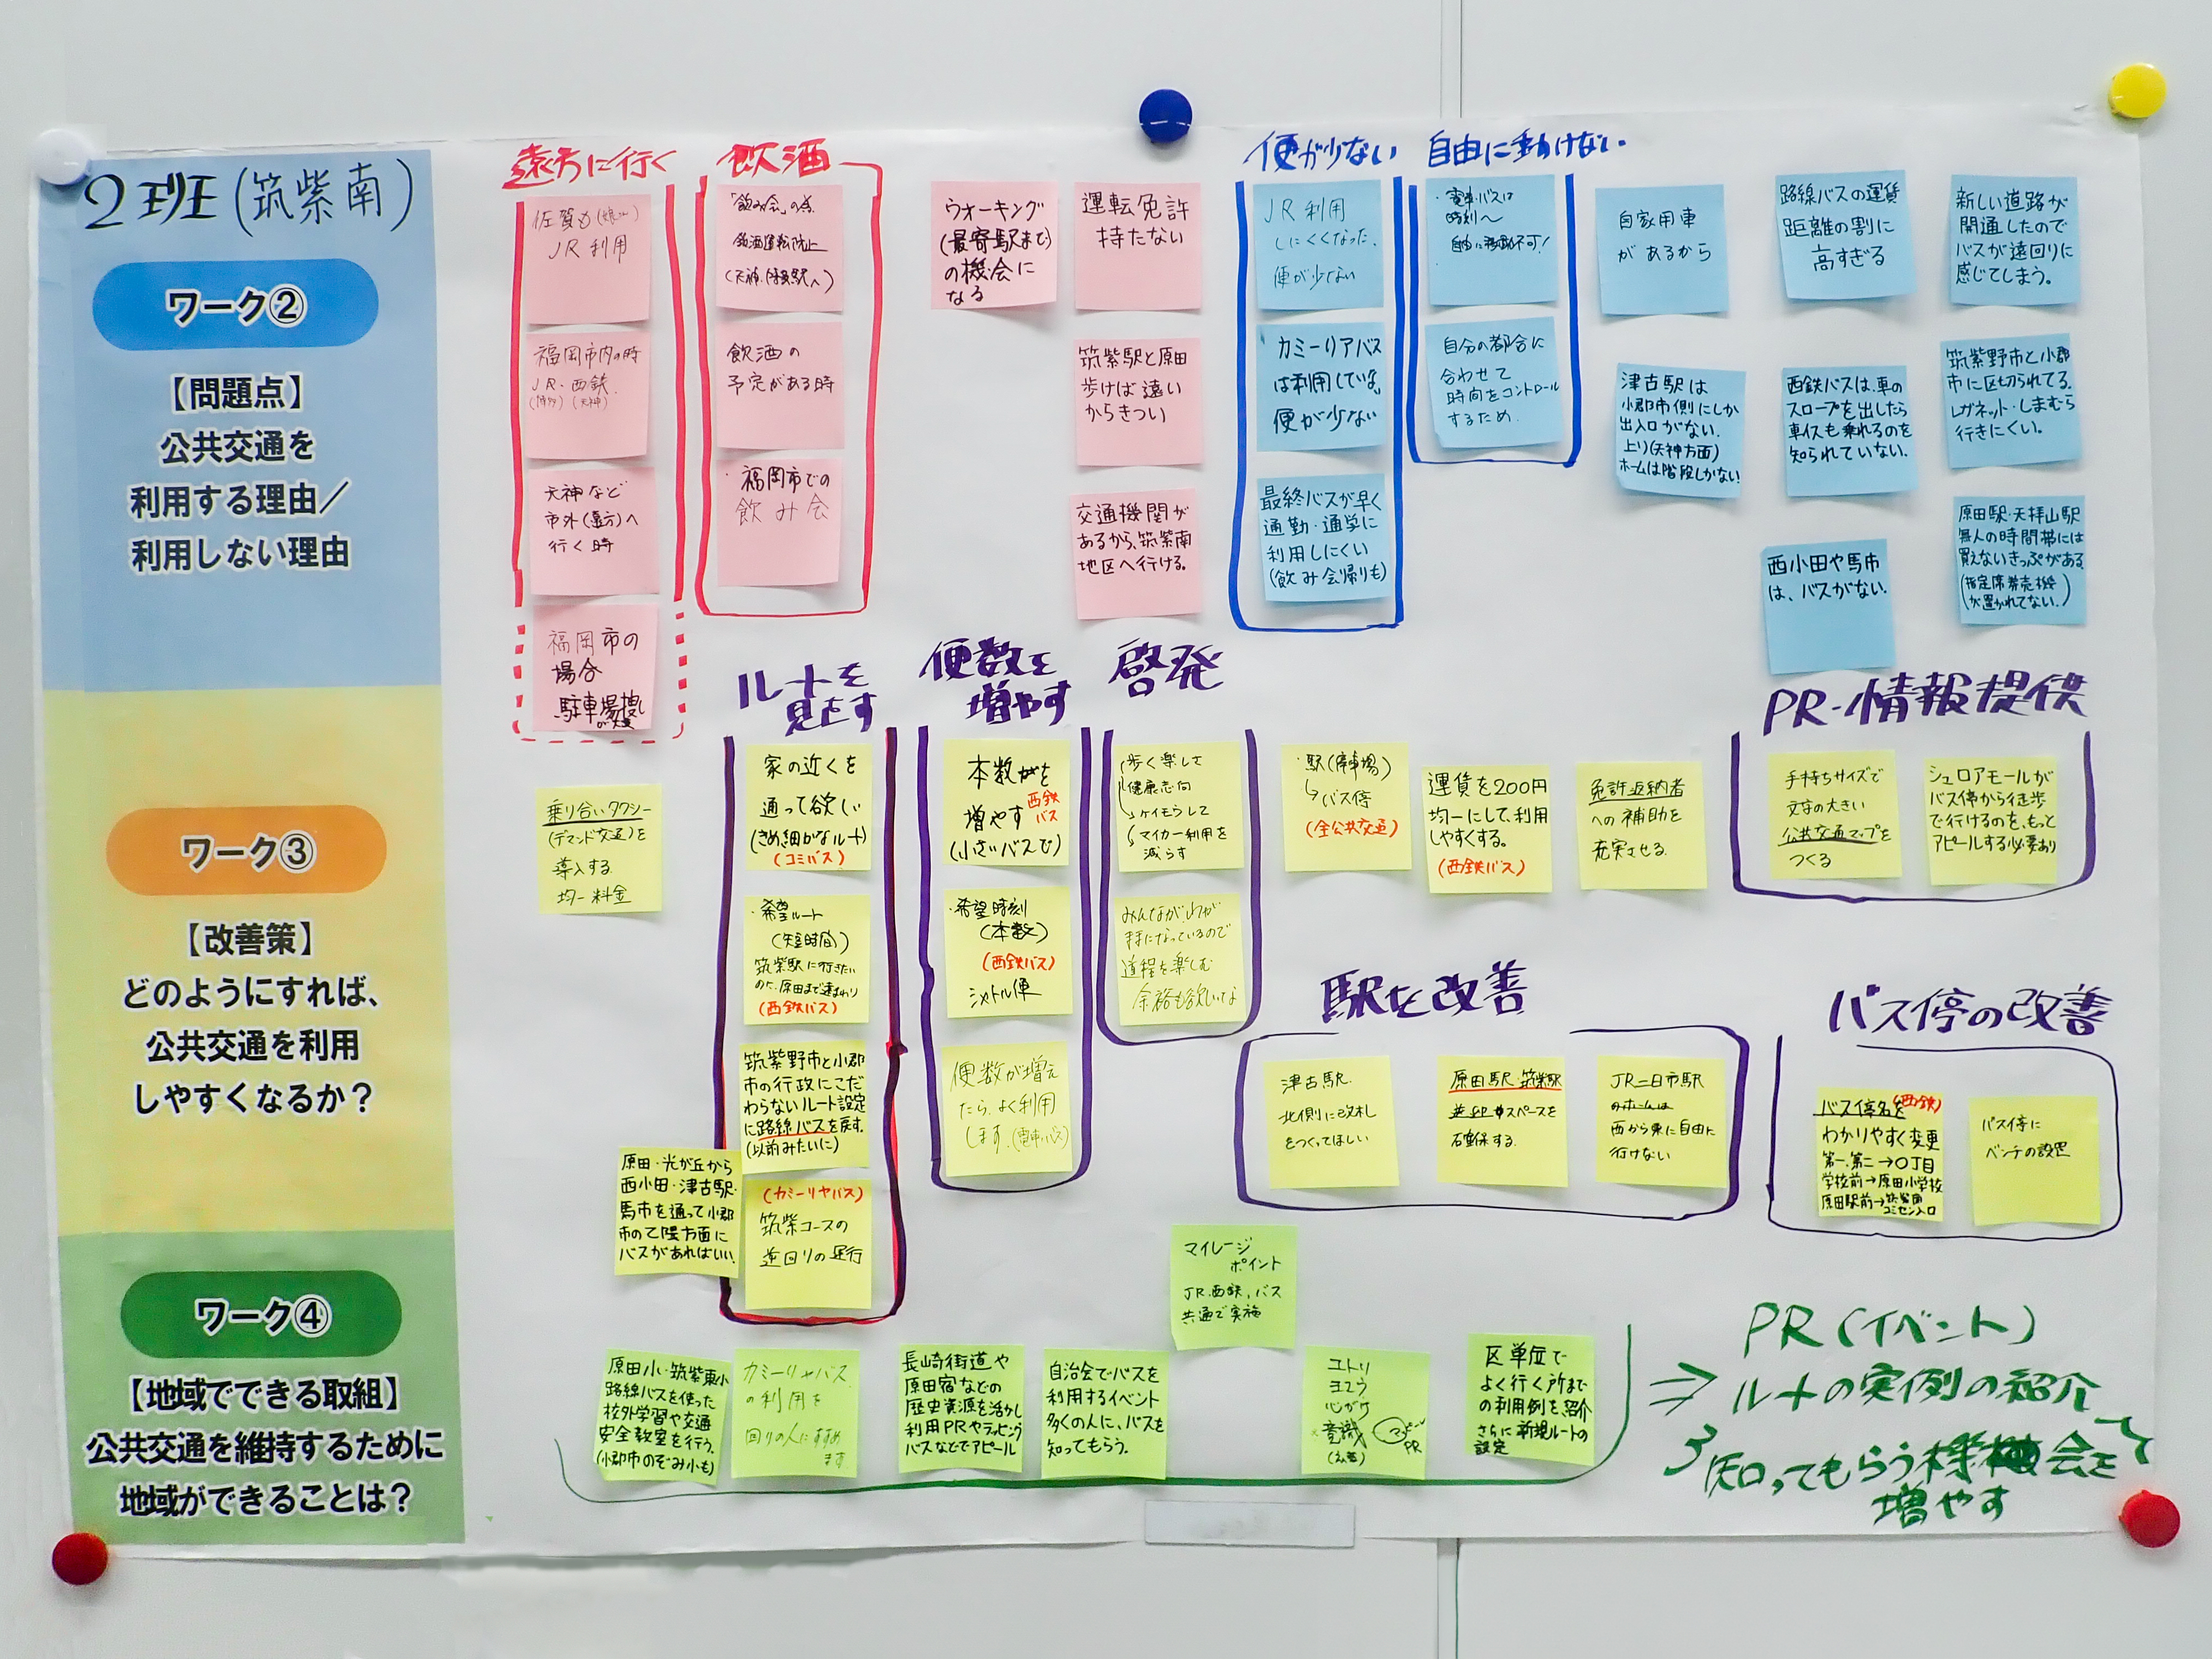 2班(筑紫南)
ワーク②
【問題点】
公共交通を
利用する理由／
利用しない理由
遠方に行く
佐賀も
JR利用
福岡市内の時
JR・西鉄
(博多)(天神)
天神など
市外(遠方)へ
行く時
福岡市の
場合
駐車場捜し
飲酒
「飲み会」の為
飲酒運転防止
飲酒の
予定がある時
・福岡市での
飲み会
ウオーキング
(最寄駅まで)
の機会に
なる
運転免許
持たない
筑紫駅と原田
歩けば遠い
からきつい
交通機関が
あるから、筑紫南
地区へ行ける。
便が少ない
JR利用
しにくくなった、
便が少ない
カミーリアバス
は利用している。
便が少ない
最終バスが早く
通勤・通学に
利用しにくい
(飲み会帰りも)
自由に動けない
・電車・バスは
時刻へ
自由に移動不可！
自分の都合に
合わせて
時間をコントロール
するため
自家用車
があるから
津古駅は
小郡市側にしか
出入口がない。
上り(天神方面)
ホームは階段しかない
路線バスの運賃
距離の割に
高すぎる
西鉄バスは、車の
スロープを出したら
車イスも乗れるのを
知られていない。
西小田や馬市
は、バスがない。
新しい道路が
開通したので
バスが遠回りに
感じてしまう。
筑紫野市と小郡
市に区切られてる。
レガネット・しまむら
行きにくい。
原田駅・天拝山駅
無人の時間帯には
買えないきっぷがある
(指定席券売機
が置かれてない。)
ワーク③
【改善策】
どのようにすれば、
公共交通を利用
しやすくなるか？
乗り合いタクシー
(デマンド交通)を
導入する
均一料金
ルートを
見直す
家の近くを
通って欲しい
(きめ細かなルート)
(コミバス)
・希望ルート
(短時間)
筑紫駅に行きたい
のに、原田まで遠まわり
(西鉄バス)
筑紫野市と小郡
市の行政にこだ
わらないルート設定
に路線バスを戻す。
(以前みたいに)
(カミーリヤバス)
筑紫コースの
逆回りの運行
原田・光が丘から
西小田・津古駅・
馬市を通って小郡
市の七隈方面に
バスがあればいい。
便数を
増やす
本数がを
増やす 西鉄
バス
(小さいバスで)
・希望時刻
(本数)
(西鉄バス)
シャトル便
便数が増え
たら、よく利用
します。(電車・バス)
啓発
歩く楽して
健康志向
ケイモウして
マイカー利用を
減らす
みんなが、わが
ままになっているので
道程を楽しむ
余裕も欲しいな
・駅(停車場)
↳バス停
(全公共交通)
運賃を200円
均一にして、利用
しやすくする。
(西鉄バス)
免許返納者
への補助を
充実させる
PR・情報提供
手持ちサイズで
文字の大きい
公共交通マップを
つくる
シュロアモールが
バス停から徒歩
で行けるのを、もっと
アピールする必要あり
駅を改善
津古駅
北側に改札
をつくってほしい
原田駅・筑紫駅
スペースを
確保する
JR二日市駅
のホームは
西から東に自由に
行けない
バス停の改善
バス停名を(西鉄)
わかりやすく変更
第一、第二→〇丁目
学校前→原田小学校
原田駅前→筑紫南
コミセン入口
バス停に
ベンチの設置
ワーク④
【地域でできる取組】
公共交通を維持するために
地域ができることは？
マイレージ
ポイント
JR、西鉄、バス
共通で実施
原田小・筑紫東小
路線バスを使った
校外学習や交通
安全教室を行う。
(小郡市のぞみ小も)
カミーリヤバス
の利用を
回りの人にすすめ
ます
長崎街道や
原田宿などの
歴史資源を活かし
利用PRやラッピング
バスなどでアピール
自治会でバスを
利用するイベント
多くの人に、バスを
知ってもらう。
ユトリ
ヨユウ
心がけ
意識
PR
区単位で
よく行く所まで
の利用例を紹介
さらに新規ルートの
設定
PR(イベント)
⇒ルートの実例の紹介
知ってもらう機会を
増やす